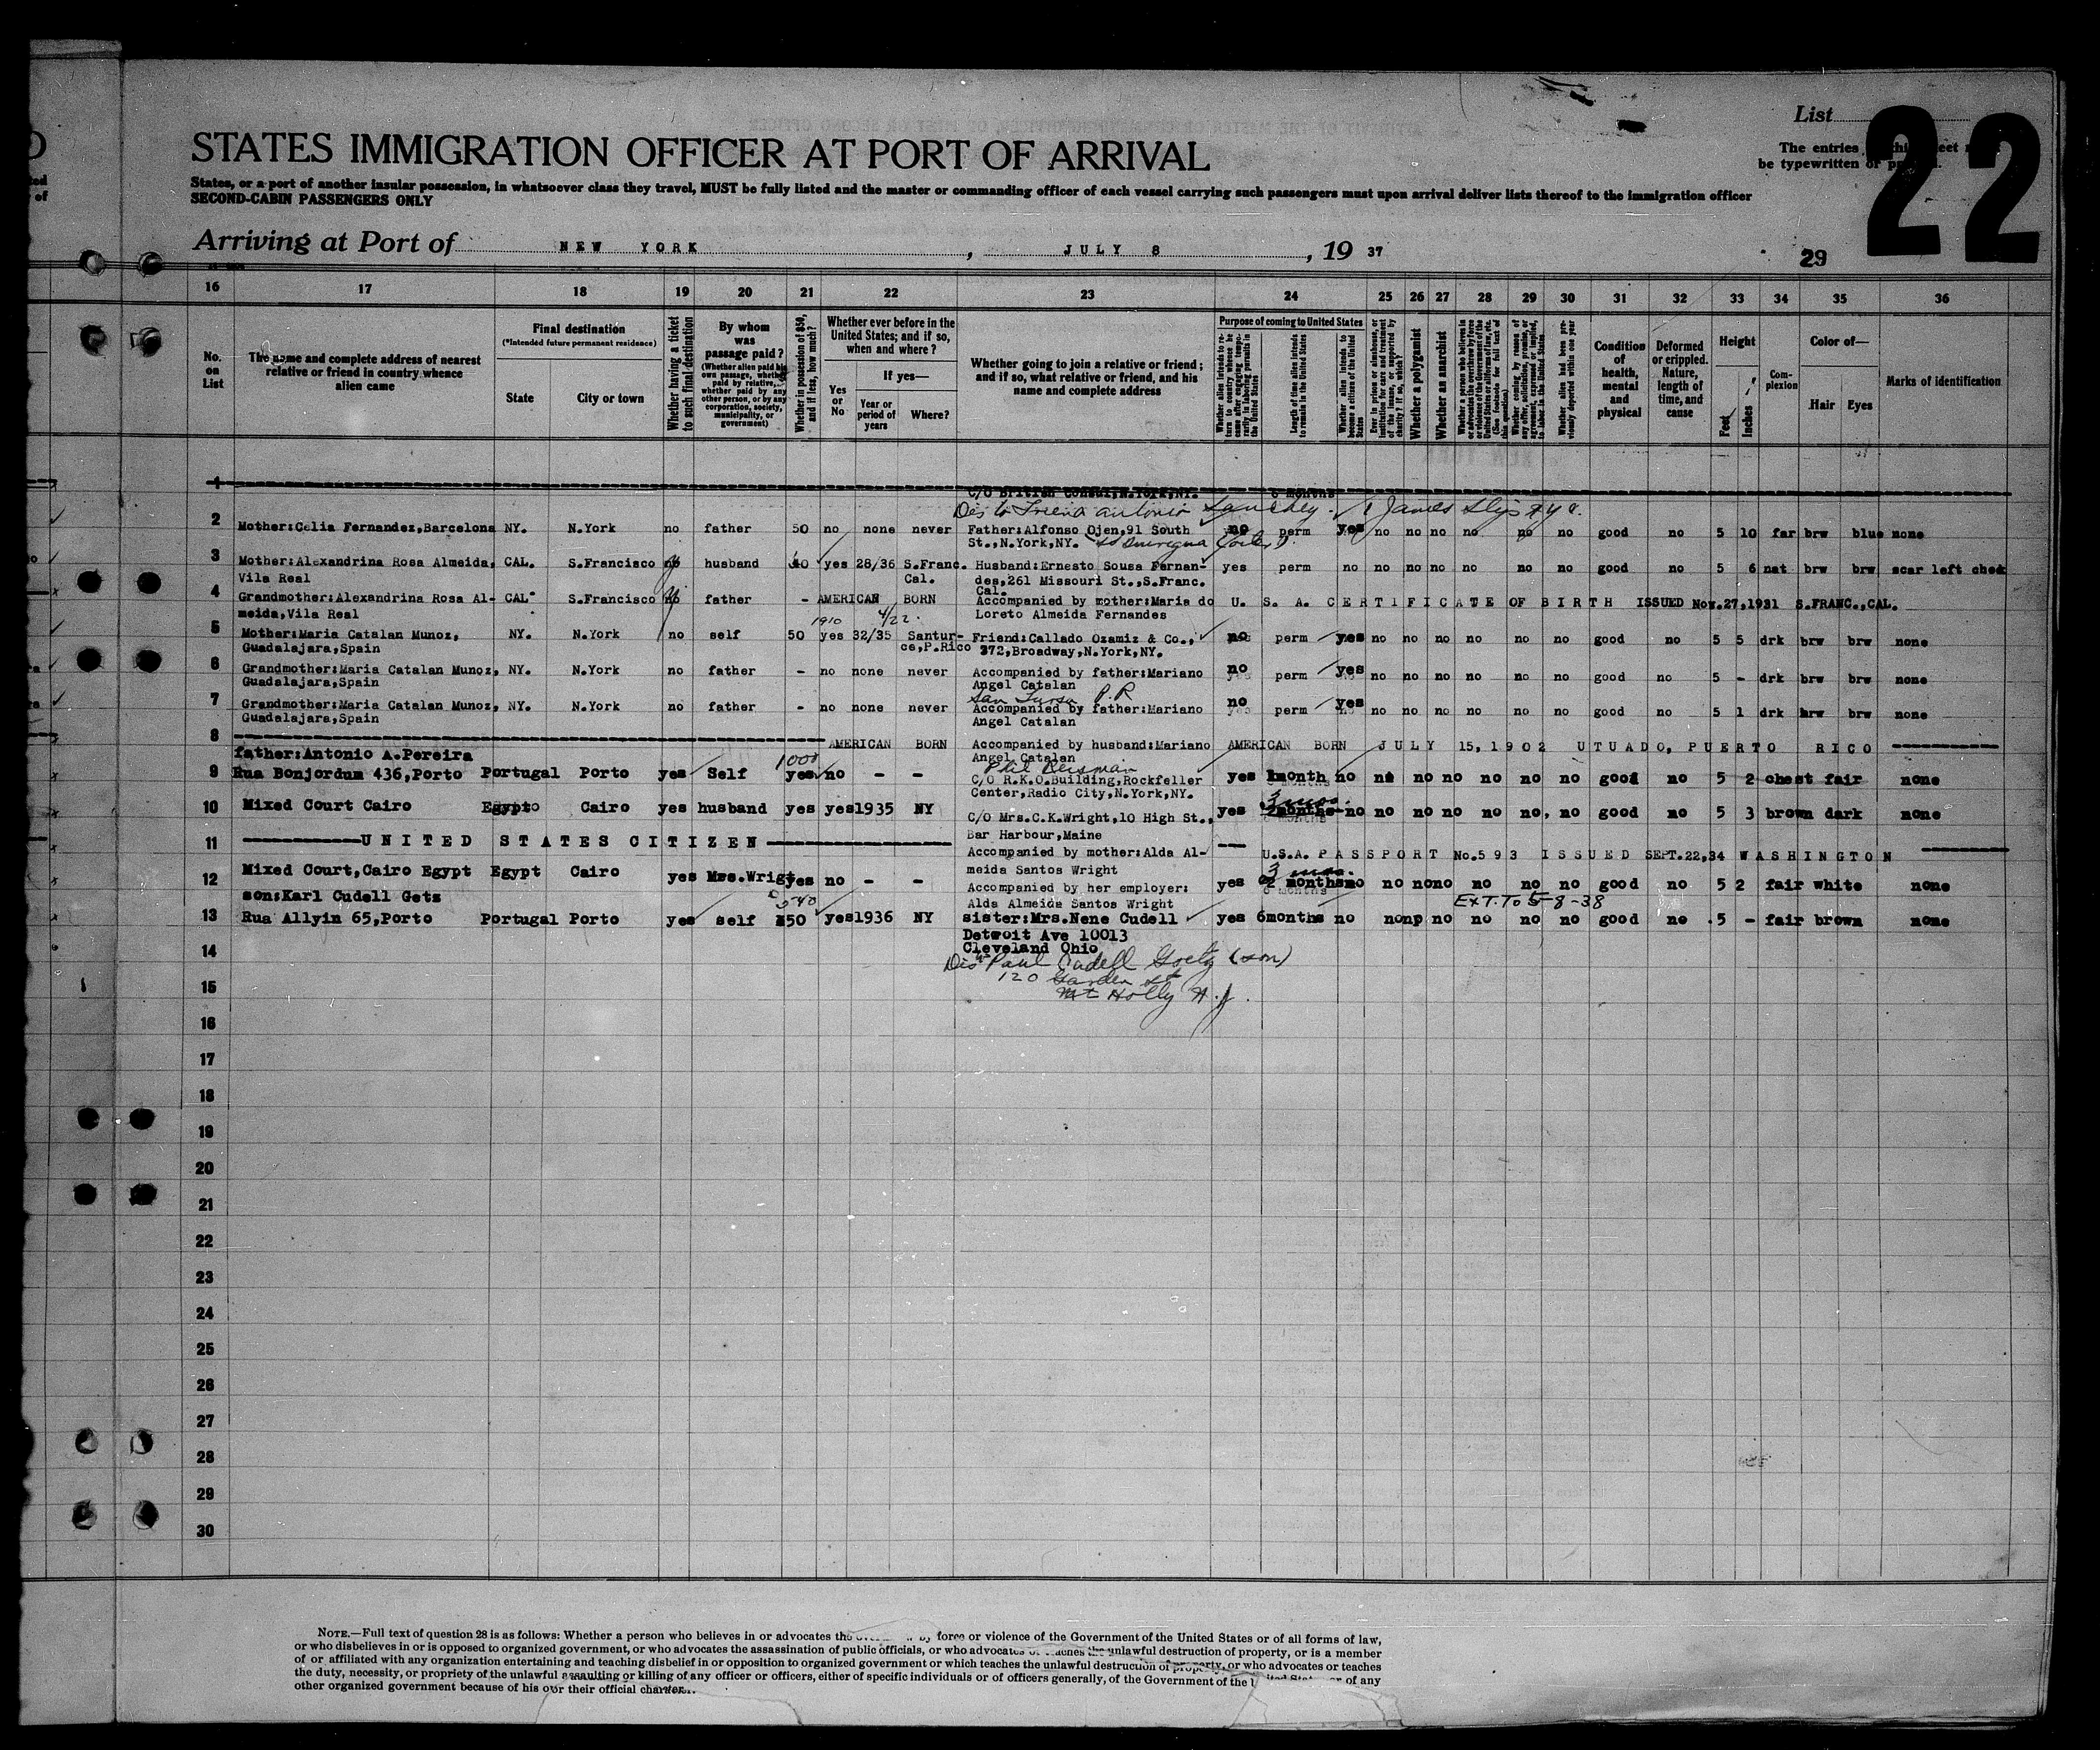 List
22
The entries
be typewritten or
STATES IMMIGRATION OFFICER AT PORT OF ARRIVAL
States, or a port of another insular possession, in whatsoever class they travel, MUST be fully listed and the master or commanding officer of each vessel carrying such passengers must upon arrival deliver lists thereof to the immigration officer
SECOND-CABIN PASSENGERS ONLY
Arriving at Port of NEW YORK, JULY 8, 19 37
29
16 17 18 19 20 21 22 23 24 25 26 27 28 29 30 31 32 33 34 35 36
No. on List
The name and complete address of nearest relative or friend in country whence alien came
Final destination
(*Intended future permanent residence)
State City or town
Whether having a ticket to such final destination
By whom was passage paid?
(Whether alien paid his own passage, whether paid by relative, whether paid by any other person, or by any corporation, society, municipality, or government)
Whether in possession of $50, and if less, how much?
Whether ever before in the United States; and if so, when and where?
Yes or No
If yes—
Year or period of years
Where?
Whether going to join a relative or friend; and if so, what relative or friend, and his name and complete address
Purpose of coming to United States
Length of time alien intends to remain in the United States
Whether alien intends to become a citizen of the United States
Whether a polygamist
Whether an anarchist
Condition of health, mental and physical
Deformed or crippled. Nature, length of time, and cause
Height
Feet Inches
Complexion
Color of—
Hair Eyes
Marks of identification
1
C/O British Consul, N.York, NY. 6 months
Des to Friend Antonio Sanchez James Slip N.Y.C.
2 Mother:Celia Fernandez,Barcelona NY. N.York no father 50 no none never Father:Alfonso Ojen,91 South no perm yes no no no no no no good no 5 10 far brw blue none
St.,N.York,NY.
3 Mother:Alexandrina Rosa Almeida, CAL. S.Francisco husband 40 yes 28/36 S.Franc. Husband:Ernesto Sousa Fernan- yes perm no no no no no no no good no 5 6 nat brw brw scar left chek
Vila Real Cal. des,261 Missouri St.,S.Franc.
Cal.
4 Grandmother:Alexandrina Rosa Al- CAL. S.Francisco father - AMERICAN BORN Accompanied by mother:Maria do U. S. A. CERTIFICATE OF BIRTH ISSUED Nov.27,1931 S.FRANC.,CAL.
meida,Vila Real Loreto Almeida Fernandes
1910 4/22.
5 Mother:Maria Catalan Munoz, NY. N.York no self 50 yes 32/35 Santur- Friend:Callado Ozamiz & Co., no perm yes no no no no no no good no 5 5 drk brw brw none
Guadalajara,Spain ce,P.Rico 372,Broadway,N.York,NY.
6 Grandmother:Maria Catalan Munoz, NY. N.York no father - no none never Accompanied by father:Mariano no perm yes no no no no no no good no 5 - drk brw brw none
Guadalajara,Spain Angel Catalan
P.R
7 Grandmother:Maria Catalan Munoz, NY. N.York no father - no none never Accompanied by father:Mariano no perm yes no no no no no no good no 5 1 drk brw brw none
Guadalajara,Spain Angel Catalan
8 AMERICAN BORN Accompanied by husband:Mariano AMERICAN BORN JULY 15,1902 UTUADO, PUERTO RICO
Angel Catalan
father:Antonio A.Pereira 1000 Phil Reisman
9 Rua Bonjordum 436,Porto Portugal Porto yes Self yes no - - C/O R.K.O.Building,Rockfeller yes 1month no no no no no no no good no 5 2 chest fair none
Center,Radio City,N.York,NY.
3 mos.
10 Mixed Court Cairo Egypt Cairo yes husband yes yes 1935 NY C/O Mrs.C.K.Wright,10 High St., yes 2months no no no no no no. no good no 5 3 brown dark none
Bar Harbour,Maine
11 UNITED STATES CITIZEN Accompanied by mother:Alda Al- U.S.A. PASSPORT No.593 ISSUED SEPT.22,34 WASHINGTON
meida Santos Wright
3 mos.
12 Mixed Court,Cairo Egypt Egypt Cairo yes Mrs.Wrigt yes no - - Accompanied by her employer: yes 2 months no no no no no no no good no 5 2 fair white none
Alda Almeida Santos Wright
son:Karl Cudell Gets 540 EXT.To 5-8-38
13 Rua Allyin 65,Porto Portugal Porto yes self 50 yes 1936 NY sister:Mrs.Nene Cudell yes 6months no no no no no no no good no 5 - fair brown none
Detroit Ave 10013
Cleveland Ohio
14 Dis to Paul Cudell Goetz (son)
120 Garden St
15 Mt Holly N.J.
16
17
18
19
20
21
22
23
24
25
26
27
28
29
30
NOTE.—Full text of question 28 is as follows: Whether a person who believes in or advocates the by force or violence of the Government of the United States or of all forms of law,
or who disbelieves in or is opposed to organized government, or who advocates the assassination of public officials, or who advocates or teaches the unlawful destruction of property, or is a member
of or affiliated with any organization entertaining and teaching disbelief in or opposition to organized government or which teaches the unlawful destruction of property, or who advocates or teaches
the duty, necessity, or propriety of the unlawful assaulting or killing of any officer or officers, either of specific individuals or of officers generally, of the Government of the United States or of any
other organized government because of his or their official character.